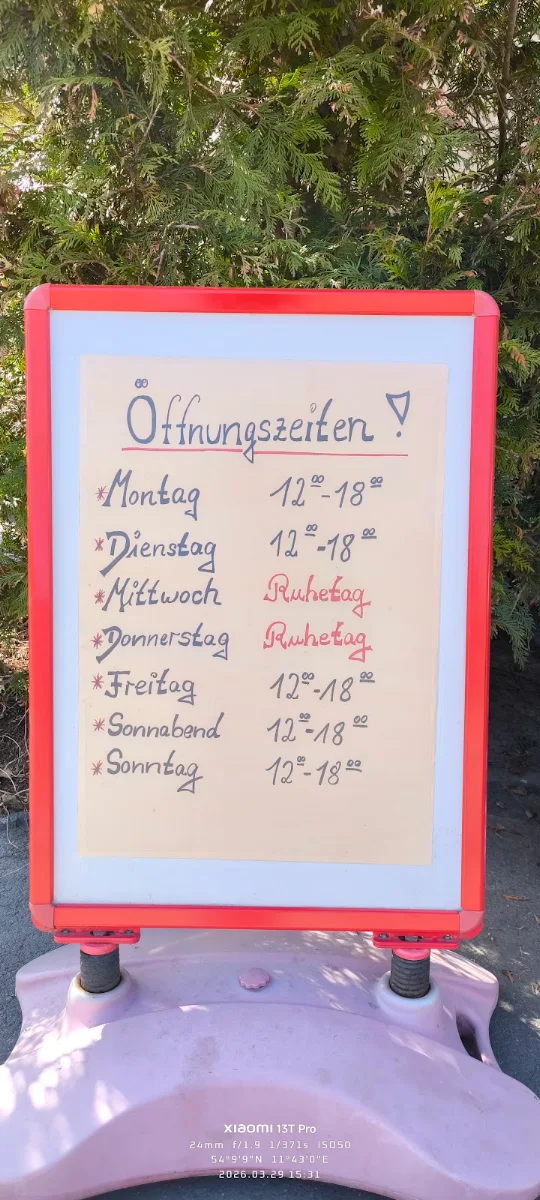 Öffnungszeiten!
*Montag 12⁰⁰-18⁰⁰
*Dienstag 12⁰⁰-18⁰⁰
*Mittwoch Ruhetag
*Donnerstag Ruhetag
*Freitag 12⁰⁰-18⁰⁰
*Sonnabend 12⁰⁰-18⁰⁰
*Sonntag 12⁰⁰-18⁰⁰
xiaomi 13T Pro
24mm f/1.9 1/371s ISO50
54°9'9"N 11°43'0"E
2026.03.29 15:31